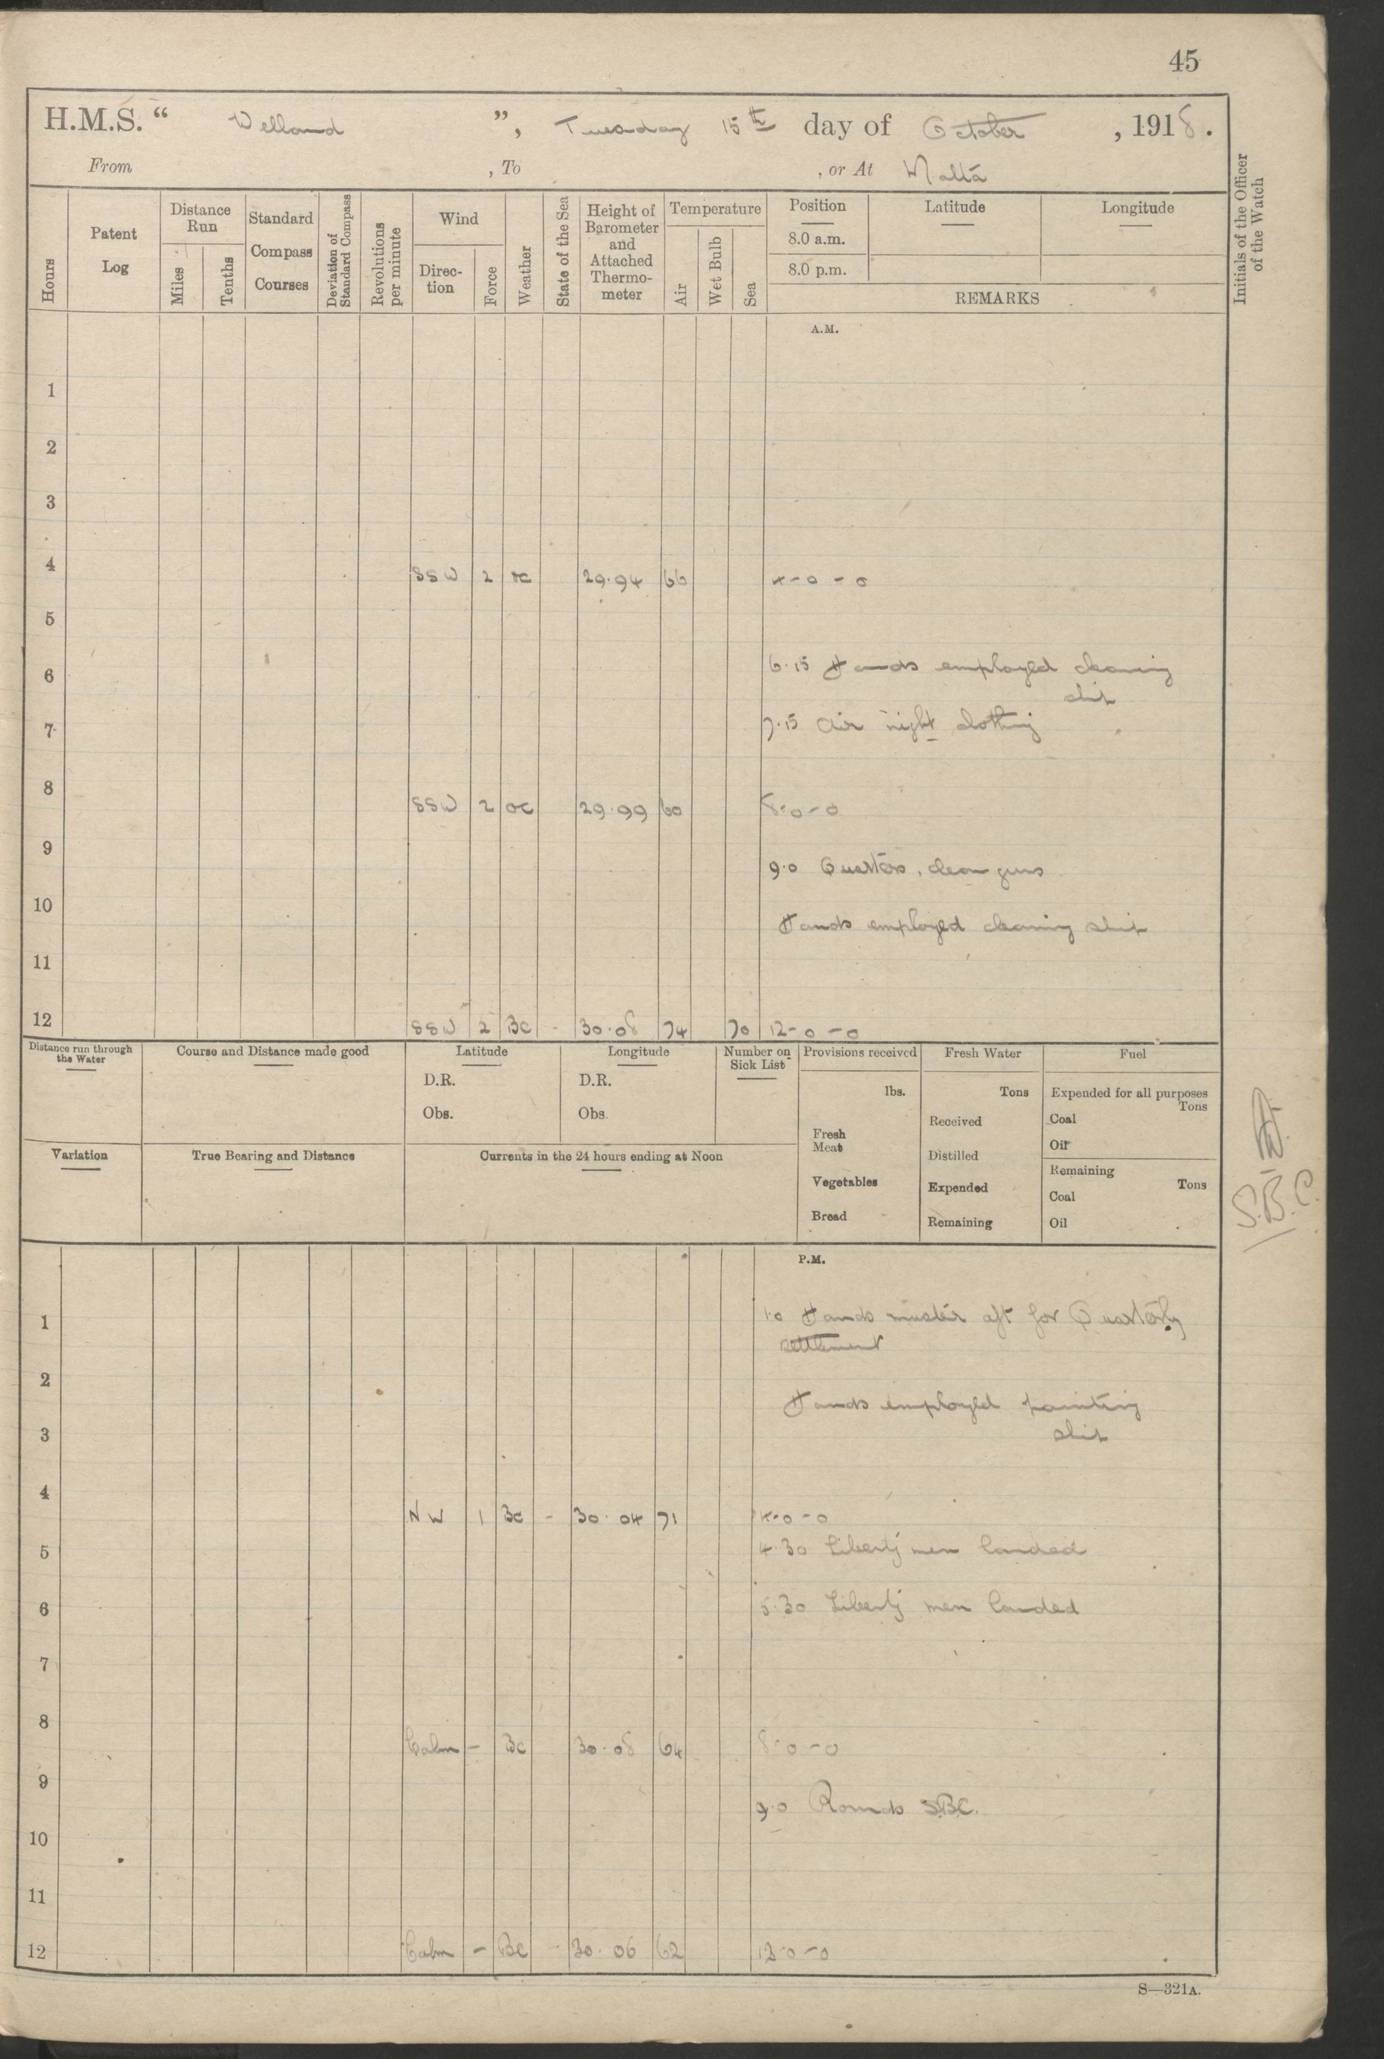 45
H.M.S. “ Welland ”, Tuesday 15th day of October , 1918.
From , To , or At Malta
Hours
Patent Log
Distance Run
Miles
Tenths
Standard Compass Courses
Deviation of Standard Compass
Revolutions per minute
Wind
Direc-tion
Force
Weather
State of the Sea
Height of Barometer and Attached Thermo-meter
Temperature
Air
Wet Bulb
Sea
Position
8.0 a.m.
8.0 p.m.
Latitude
Longitude
REMARKS
Initials of the Officer of the Watch
A.M.
1
2
3
4 SSW 2 oc 29.94 66 4-0-0
5
6 6.15 Hands employed cleaning
ship
7 7.15 Air night clothing
8 SSW 2 oc 29.99 60 8-0-0
9 9.0 Quarters, clean guns
10 Hands employed cleaning ship
11
12 SSW 2 BC - 30.08 74 70 12-0-0
Distance run through the Water
Course and Distance made good
Latitude
D.R.
Obs.
Longitude
D.R.
Obs.
Number on Sick List
Provisions received
lbs.
Fresh Meat
Vegetables
Bread
Fresh Water
Tons
Received
Distilled
Expended
Remaining
Fuel
Expended for all purposes
Tons
Coal
Oil
Remaining
Tons
Coal
Oil
Variation
True Bearing and Distance
Currents in the 24 hours ending at Noon
S.B.C.
P.M.
1 1.0 Hands muster aft for Quarterly
settlement
2 Hands employed painting
3 ship
4 NW 1 BC - 30.04 71 4-0-0
5 4.30 Liberty men landed
6 5.30 Liberty men landed
7
8 Calm - BC 30.08 64 8-0-0
9 9.0 Rounds SBC.
10
11
12 Calm - BC - 30.06 62 12-0-0
S—321A.